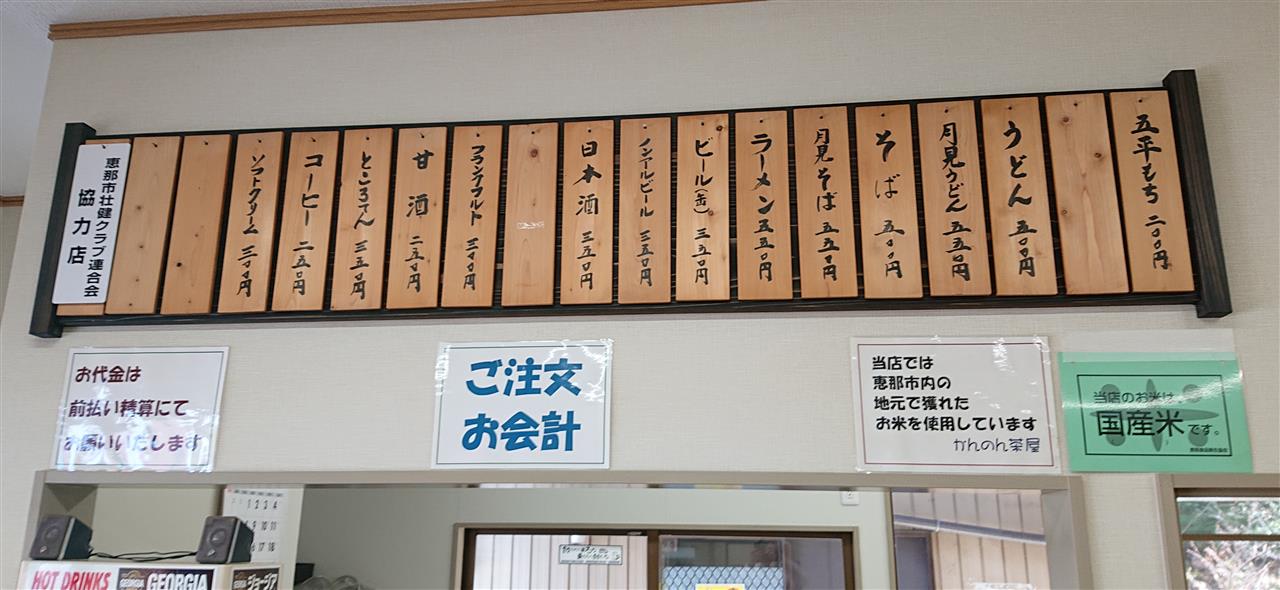 五平もち 二〇〇円
うどん 五〇〇円
月見うどん 五五〇円
そば 五〇〇円
月見そば 五五〇円
ラーメン 五五〇円
ビール(缶) 三五〇円
ノンアルビール 三五〇円
日本酒 三五〇円
フランクフルト 三〇〇円
甘酒 二五〇円
ところてん 三五〇円
コーヒー 二五〇円
ソフトクリーム 三〇〇円
恵那市壮健クラブ連合会
協力店
お代金は
前払い精算にて
お願いいたします
ご注文
お会計
当店では
恵那市内の
地元で獲れた
お米を使用しています
かんのん茶屋
当店のお米は、
国産米です。
1 2 3 4
9 10 11
17 18
HOT DRINKS
GEORGIA
GEORGIA
ジョージア